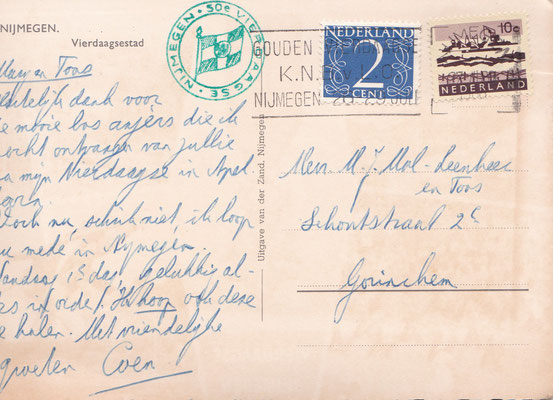 NIJMEGEN.
Vierdaagsestad
NIJMEGEN · 50e VIERDAAGSE
GOUDEN
K.N.
NIJMEGEN
NEDERLAND
2
CENT
10c
NEDERLAND
en Toos
telijk dank voor
e mooie bos anjers die ik
ocht ontvangen van jullie
mijn Vierdaagse in Apel
Toch nu, schrik niet, ik loop
u mede in Nijmegen.
Vandaag 1e dag gelukkig al-
es in orde! Ik hoop ook deze
e halen. Met vriendelijke
groeten Coen
Uitgave van der Zand, Nijmegen
Mevr M. J. Mol-Leenheer
en Toos
2c
Gorinchem